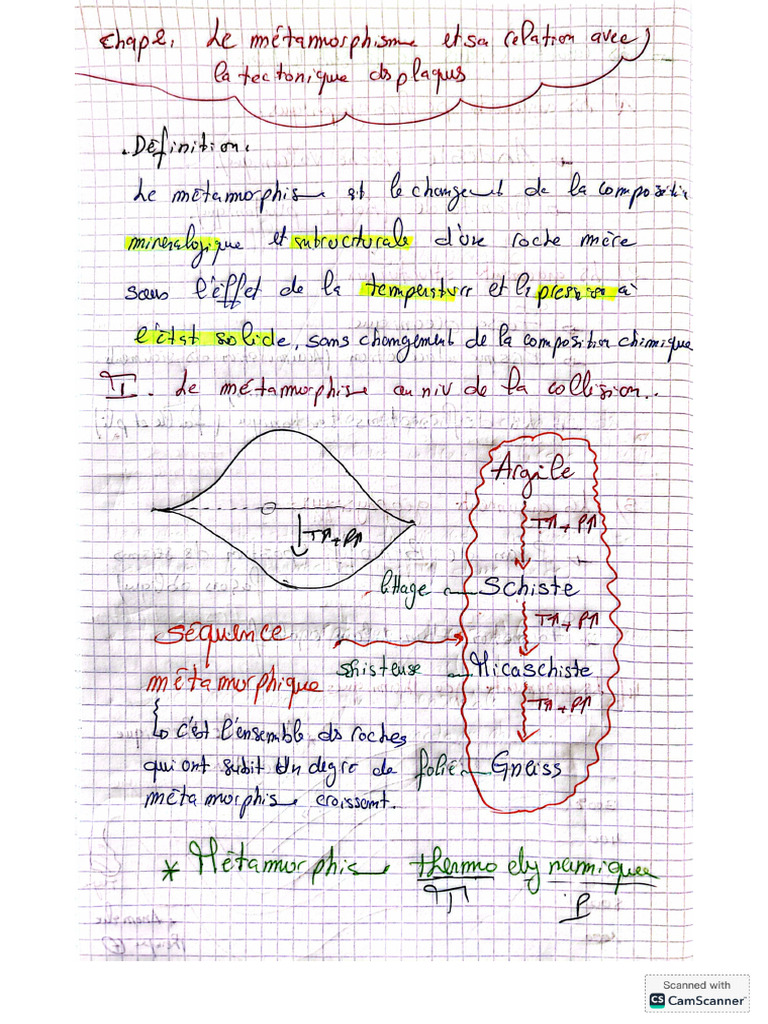 Chap2. Le métamorphisme et sa relation avec
la tectonique ds plaques
. Définition.
Le métamorphis est le changemt de la compositi
minéralogique et subructurale d'une roche mère
sous l'effet de la température et la pression à
l'état solide, sans changement de la composition chimique
I. Le métamorphis au niv de la collision..
Argile
T↑ + P↑
T↑ + P↑
littage Schiste
T↑ + P↑
séquence
métamorphique
shisteuse Micaschiste
T↑ + P↑
↳ c'est l'ensemble ds roches
qui ont subit un degré de
métamorphis croissant.
folié Gneiss
* Métamorphis thermo dynamique
T P
Scanned with
CS CamScanner